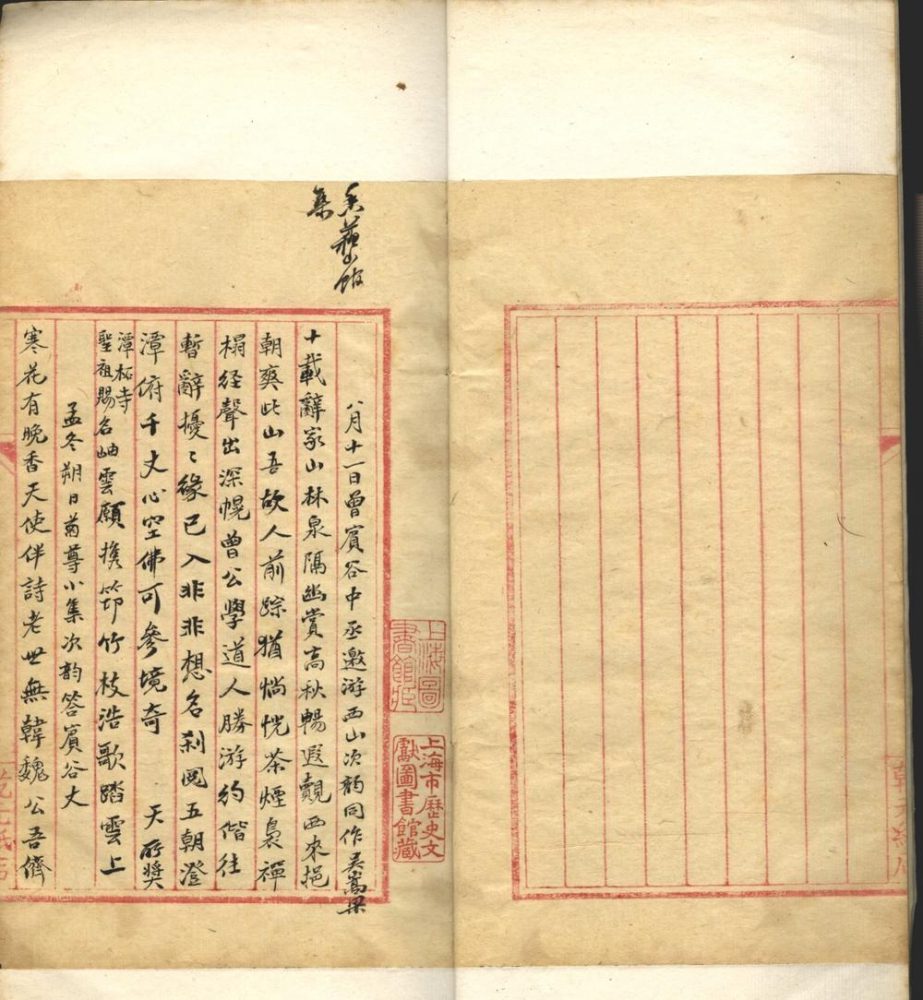 香蘇山館
集
八月十一日曾賓谷中丞邀游西山次韵同作 吳嵩梁
十載辭家山林泉隔幽賞高秋暢遐覿西來挹
朝爽此山吾故人前踪猶惝恍茶煙裊禪
榻經聲出深幌曾公學道人勝游約偕往
暫辭擾〻緣已入非非想名刹閱五朝澄
潭俯千丈心空佛可參境奇 天所獎
潭柘寺
聖祖賜名岫雲願攜筇竹枝浩歌踏雲上
孟冬朔日菊尊小集次韵答賓谷丈
寒花有晚香天使伴詩老世無韓魏公吾儕
上海圖
書館藏
上海市歷史文
獻圖書館藏